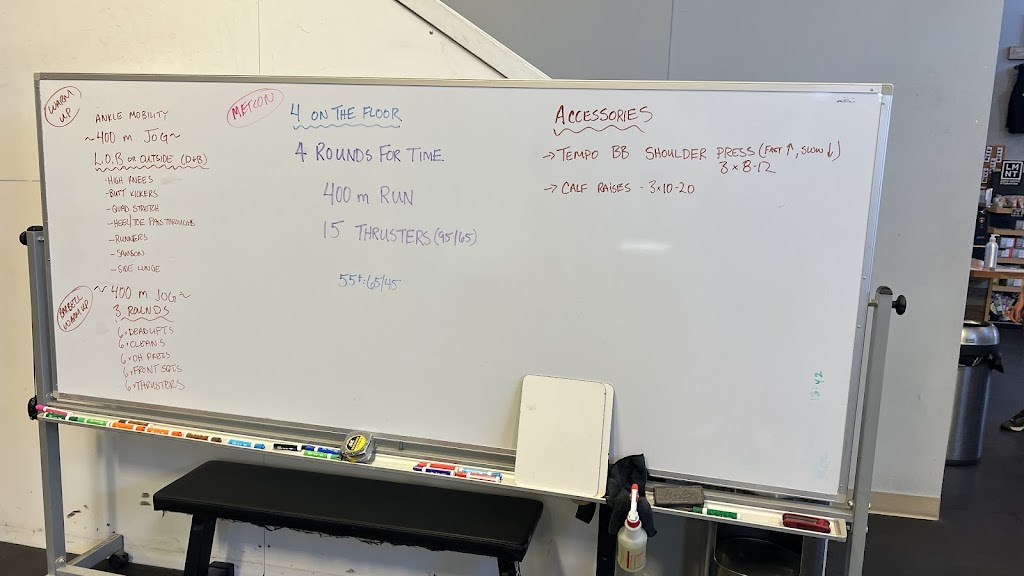 WARM UP
ANKLE MOBILITY
~400 m JOG~
L.O.B OR OUTSIDE (D+B)
-HIGH KNEES
-BUTT KICKERS
-QUAD STRETCH
-HEEL/TOE PASS THROUGHS
-RUNNERS
-SAMSON
-SIDE LUNGE
~400 m JOG~
BARBELL WARM UP
3 ROUNDS
6x DEADLIFTS
6x CLEANS
6x OH PRESS
6x FRONT SQTS
6x THRUSTERS
METCON
4 ON THE FLOOR
4 ROUNDS FOR TIME
400 m RUN
15 THRUSTERS (95/65)
55+: 65/45
ACCESSORIES
→ TEMPO BB SHOULDER PRESS (FAST ↑, SLOW ↓)
3 x 8-12
→ CALF RAISES - 3x10-20
LM
NT